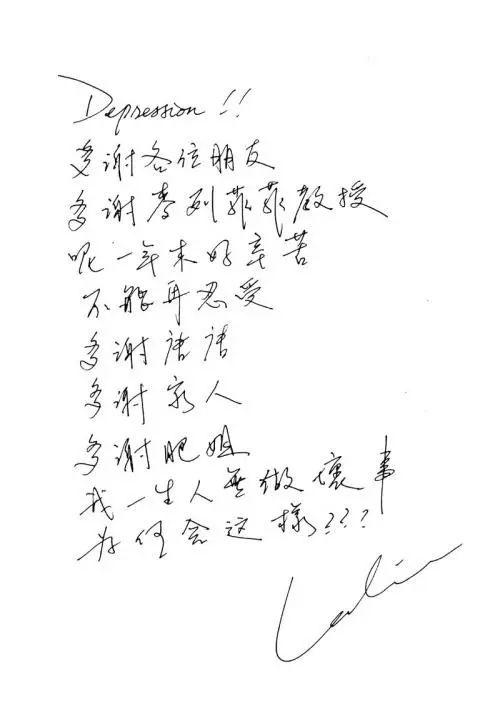 Depression!!
多謝各位朋友
多謝麥列菲菲教授
呢一年來好辛苦
不能再忍受
多謝唐唐
多謝家人
多謝肥姐
我一生人無做壞事
為何會这樣???
Leslie